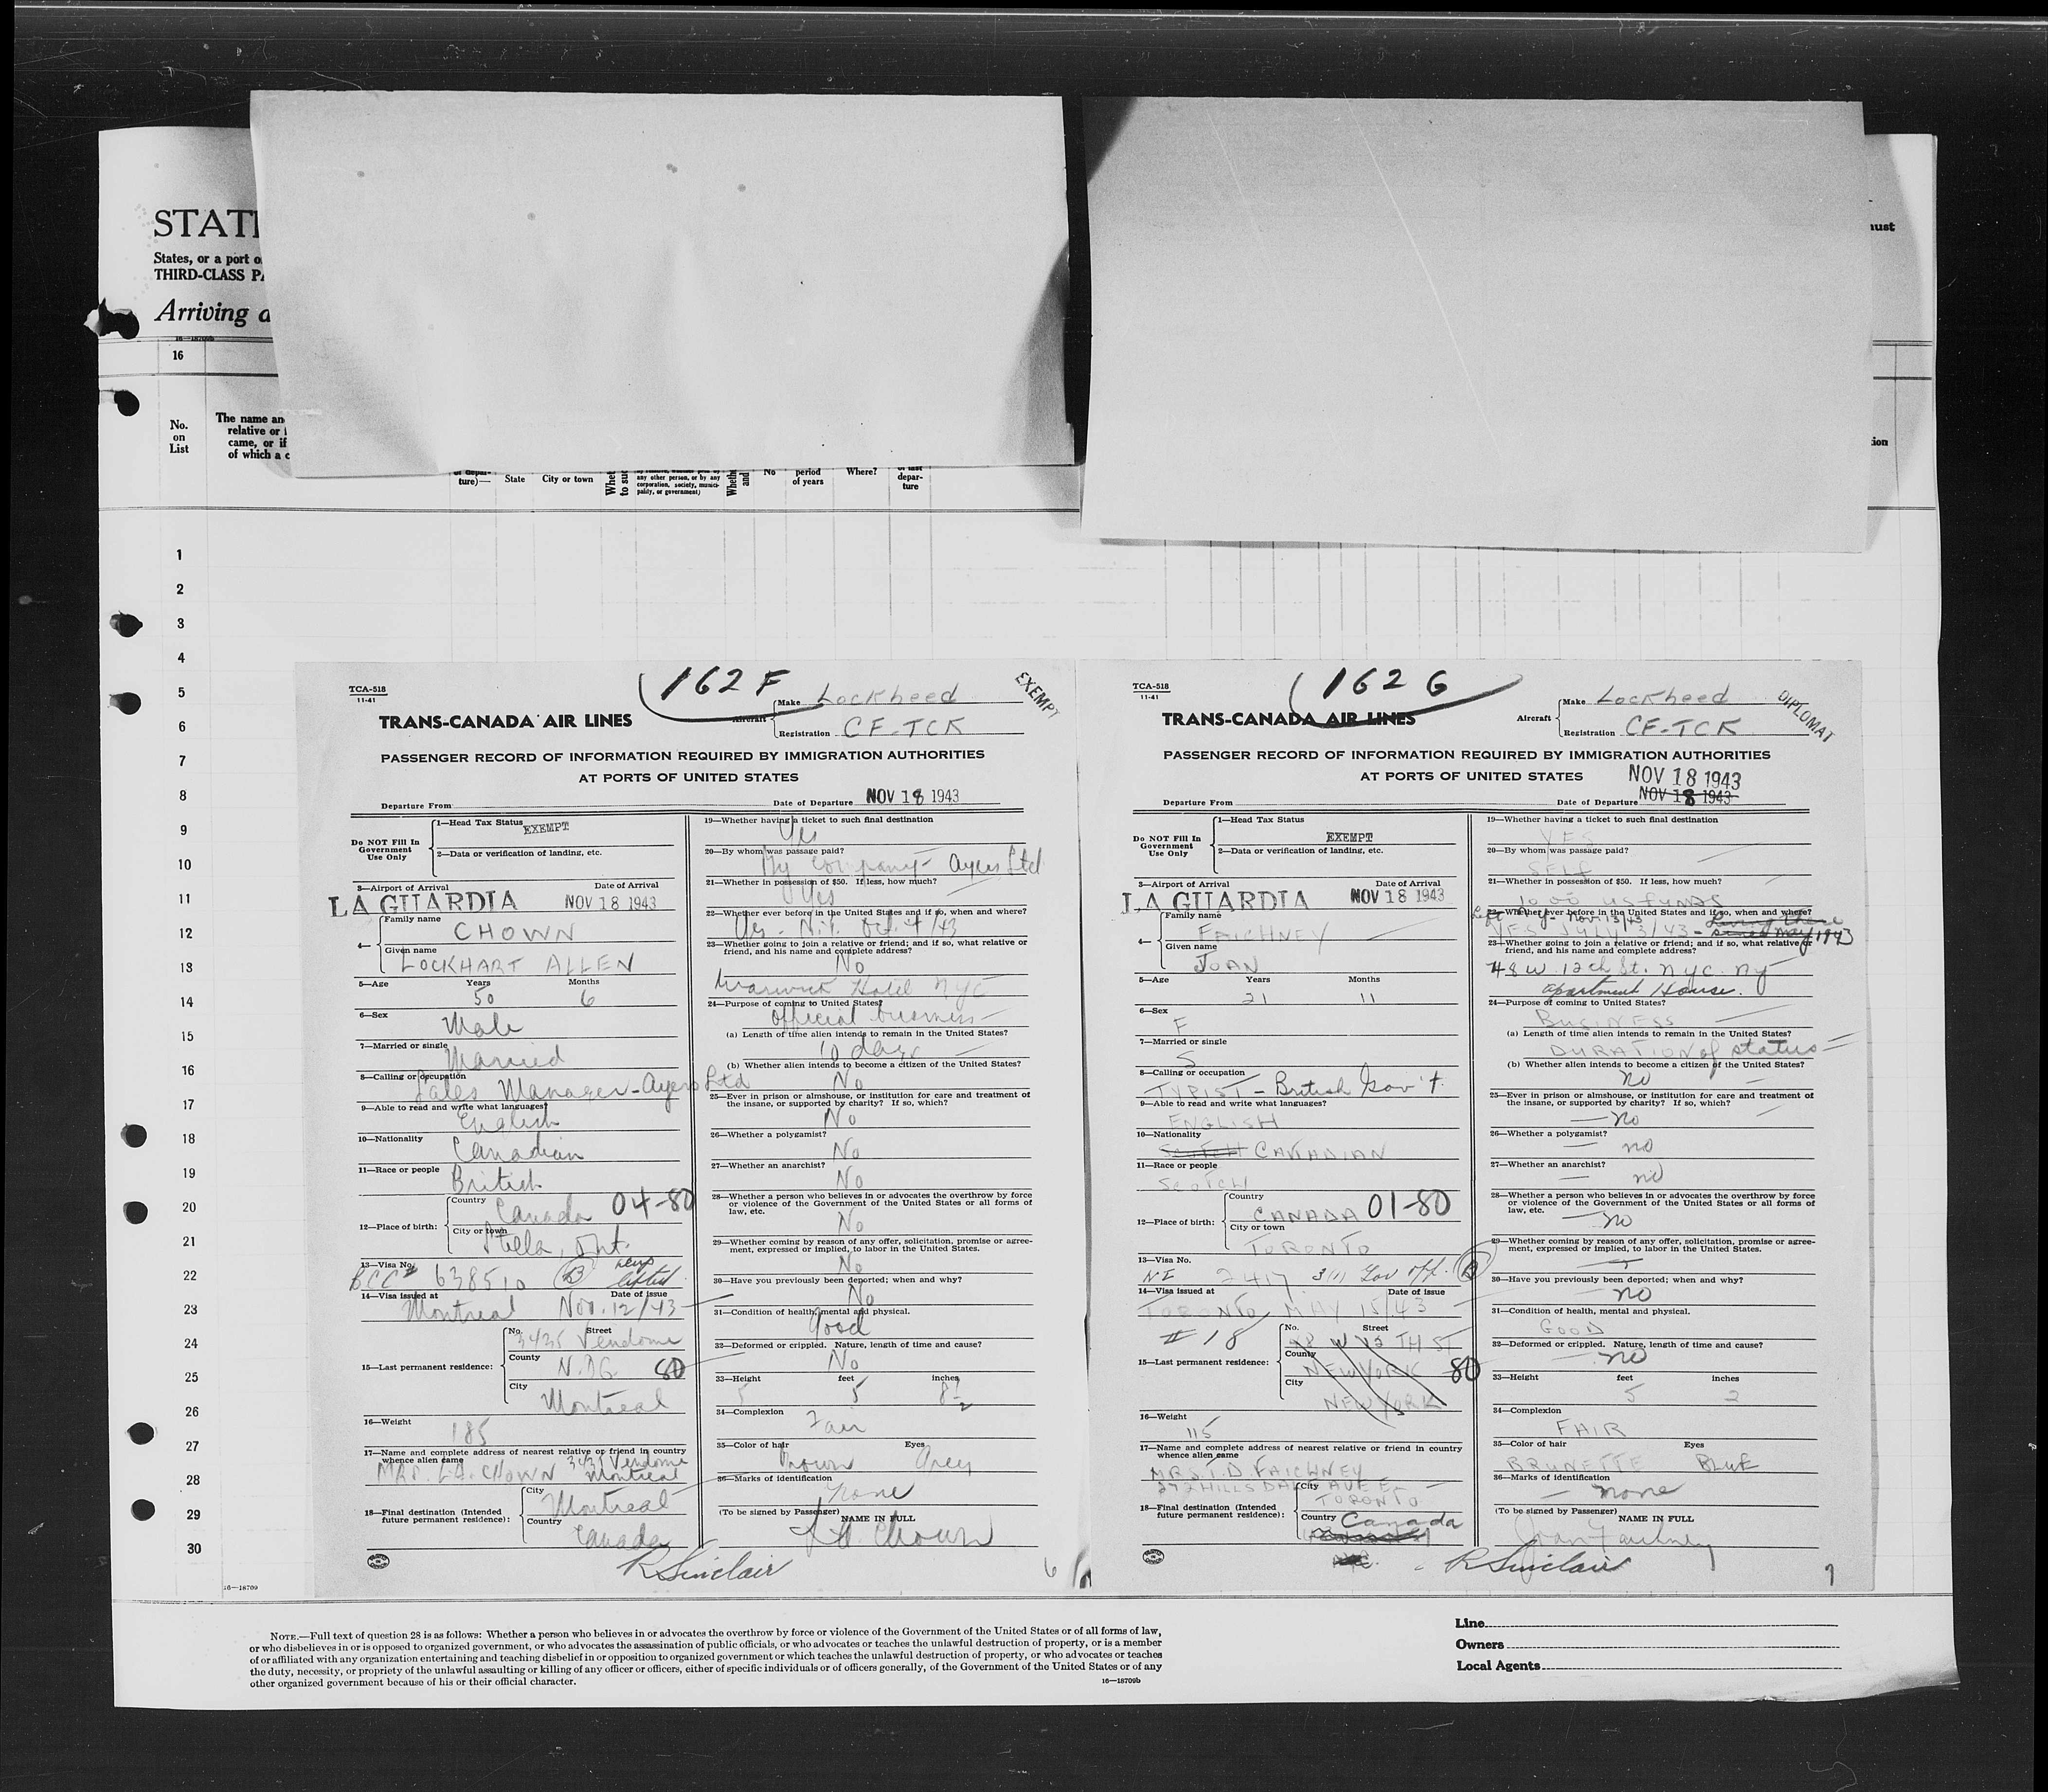 STATE
States, or a port o
THIRD-CLASS PA
Arriving a
16—18709b
16
No.
on
List
The name an
relative or
came, or if
of which a c
ture)—
State
City or town
Whet
to suc
any other person, or by any
corporation, society, munici-
pality, or government)
Wheth
and
No
period
of years
Where?
of last
depar-
ture
must
tion
1
2
3
4
5
6
7
8
9
10
11
12
13
14
15
16
17
18
19
20
21
22
23
24
25
26
27
28
29
30
16—18709
TCA-518
11-41
162 F
EXEMPT
TRANS-CANADA AIR LINES
Aircraft
Make Lockheed
Registration CF-TCK
PASSENGER RECORD OF INFORMATION REQUIRED BY IMMIGRATION AUTHORITIES
AT PORTS OF UNITED STATES
Departure From
Date of Departure NOV 18 1943
Do NOT Fill In
Government
Use Only
1—Head Tax Status
EXEMPT
2—Data or verification of landing, etc.
3—Airport of Arrival Date of Arrival
LA GUARDIA NOV 18 1943
4—
Family name
CHOWN
Given name
LOCKHART ALLEN
5—Age Years Months
50 6
6—Sex
Male
7—Married or single
Married
8—Calling or occupation
Sales Manager - Ayers Ltd
9—Able to read and write what languages?
English
10—Nationality
Canadian
11—Race or people
British
12—Place of birth:
Country
Canada 04-80
City or town
Stella, Ont.
13—Visa No.
BCC# 638510 (B) lifted
14—Visa issued at Date of issue
Montreal Nov. 12/43
15—Last permanent residence:
No. Street
3435 Vendome
County
N.D.G. 80
City
Montreal
16—Weight
185
17—Name and complete address of nearest relative or friend in country
whence alien came 3435 Vendome
MRS. L.A. CHOWN Montreal
18—Final destination (Intended
future permanent residence):
City
Montreal
Country
Canada
19—Whether having a ticket to such final destination
Yes
20—By whom was passage paid?
My Company - Ayers Ltd
21—Whether in possession of $50. If less, how much?
Yes
22—Whether ever before in the United States and if so, when and where?
Yes - N.Y. Oct. 4/43
23—Whether going to join a relative or friend; and if so, what relative or
friend, and his name and complete address?
No
Warwick Hotel NYC
24—Purpose of coming to United States?
Official business
(a) Length of time alien intends to remain in the United States?
10 days
(b) Whether alien intends to become a citizen of the United States?
No
25—Ever in prison or almshouse, or institution for care and treatment of
the insane, or supported by charity? If so, which?
No
26—Whether a polygamist?
No
27—Whether an anarchist?
No
28—Whether a person who believes in or advocates the overthrow by force
or violence of the Government of the United States or all forms of
law, etc.
No
29—Whether coming by reason of any offer, solicitation, promise or agree-
ment, expressed or implied, to labor in the United States.
No
30—Have you previously been deported; when and why?
No
31—Condition of health, mental and physical.
Good
32—Deformed or crippled. Nature, length of time and cause?
No
33—Height feet inches
5 5 8½
34—Complexion
Fair
35—Color of hair Eyes
Brown Grey
36—Marks of identification
none
(To be signed by Passenger)
NAME IN FULL
L.A. Chown
R Sinclair
6
TCA-518
11-41
162 G
DIPLOMAT
TRANS-CANADA AIR LINES
Aircraft
Make Lockheed
Registration CF-TCK
PASSENGER RECORD OF INFORMATION REQUIRED BY IMMIGRATION AUTHORITIES
AT PORTS OF UNITED STATES
NOV 18 1943
Departure From
Date of Departure NOV 18 1943
Do NOT Fill In
Government
Use Only
1—Head Tax Status
EXEMPT
2—Data or verification of landing, etc.
3—Airport of Arrival Date of Arrival
LA GUARDIA NOV 18 1943
4—
Family name
FAICHNEY
Given name
JOAN
5—Age Years Months
21 11
6—Sex
F
7—Married or single
S
8—Calling or occupation
TYPIST - British Gov't.
9—Able to read and write what languages?
ENGLISH
10—Nationality
SCOTCH CANADIAN
11—Race or people
SCOTCH
12—Place of birth:
Country
CANADA 01-80
City or town
TORONTO
13—Visa No.
NI 2417 3(1) Gov off. (B)
14—Visa issued at Date of issue
TORONTO MAY 15/43
# 18
15—Last permanent residence:
No. Street
48 W 12 TH ST
County
NEW YORK 80
City
NEW YORK
16—Weight
115
17—Name and complete address of nearest relative or friend in country
whence alien came
MRS. T.D. FAICHNEY
272 HILLSDALE AVE E.
18—Final destination (Intended
future permanent residence):
City
TORONTO
Country Canada
19—Whether having a ticket to such final destination
YES
20—By whom was passage paid?
SELF
21—Whether in possession of $50. If less, how much?
10.00 US FUNDS
22—Whether ever before in the United States and if so, when and where?
Left NY Nov 13/43 Living there
YES JULY 13/43 - since May 1943
23—Whether going to join a relative or friend; and if so, what relative or
friend, and his name and complete address?
48 W 12th St. NYC NY
apartment House.
24—Purpose of coming to United States?
BUSINESS
(a) Length of time alien intends to remain in the United States?
DURATION of status
(b) Whether alien intends to become a citizen of the United States?
no
25—Ever in prison or almshouse, or institution for care and treatment of
the insane, or supported by charity? If so, which?
no
26—Whether a polygamist?
no
27—Whether an anarchist?
no
28—Whether a person who believes in or advocates the overthrow by force
or violence of the Government of the United States or all forms of
law, etc.
no
29—Whether coming by reason of any offer, solicitation, promise or agree-
ment, expressed or implied, to labor in the United States.
30—Have you previously been deported; when and why?
no
31—Condition of health, mental and physical.
GOOD
32—Deformed or crippled. Nature, length of time and cause?
no
33—Height feet inches
5 2
34—Complexion
FAIR
35—Color of hair Eyes
BRUNETTE BLUE
36—Marks of identification
none
(To be signed by Passenger)
NAME IN FULL
Joan Faichney
R Sinclair
7
NOTE.—Full text of question 28 is as follows: Whether a person who believes in or advocates the overthrow by force or violence of the Government of the United States or of all forms of law,
or who disbelieves in or is opposed to organized government, or who advocates the assassination of public officials, or who advocates or teaches the unlawful destruction of property, or is a member
of or affiliated with any organization entertaining and teaching disbelief in or opposition to organized government or which teaches the unlawful destruction of property, or who advocates or teaches
the duty, necessity, or propriety of the unlawful assaulting or killing of any officer or officers, either of specific individuals or of officers generally, of the Government of the United States or of any
other organized government because of his or their official character.
16—18709b
Line
Owners
Local Agents